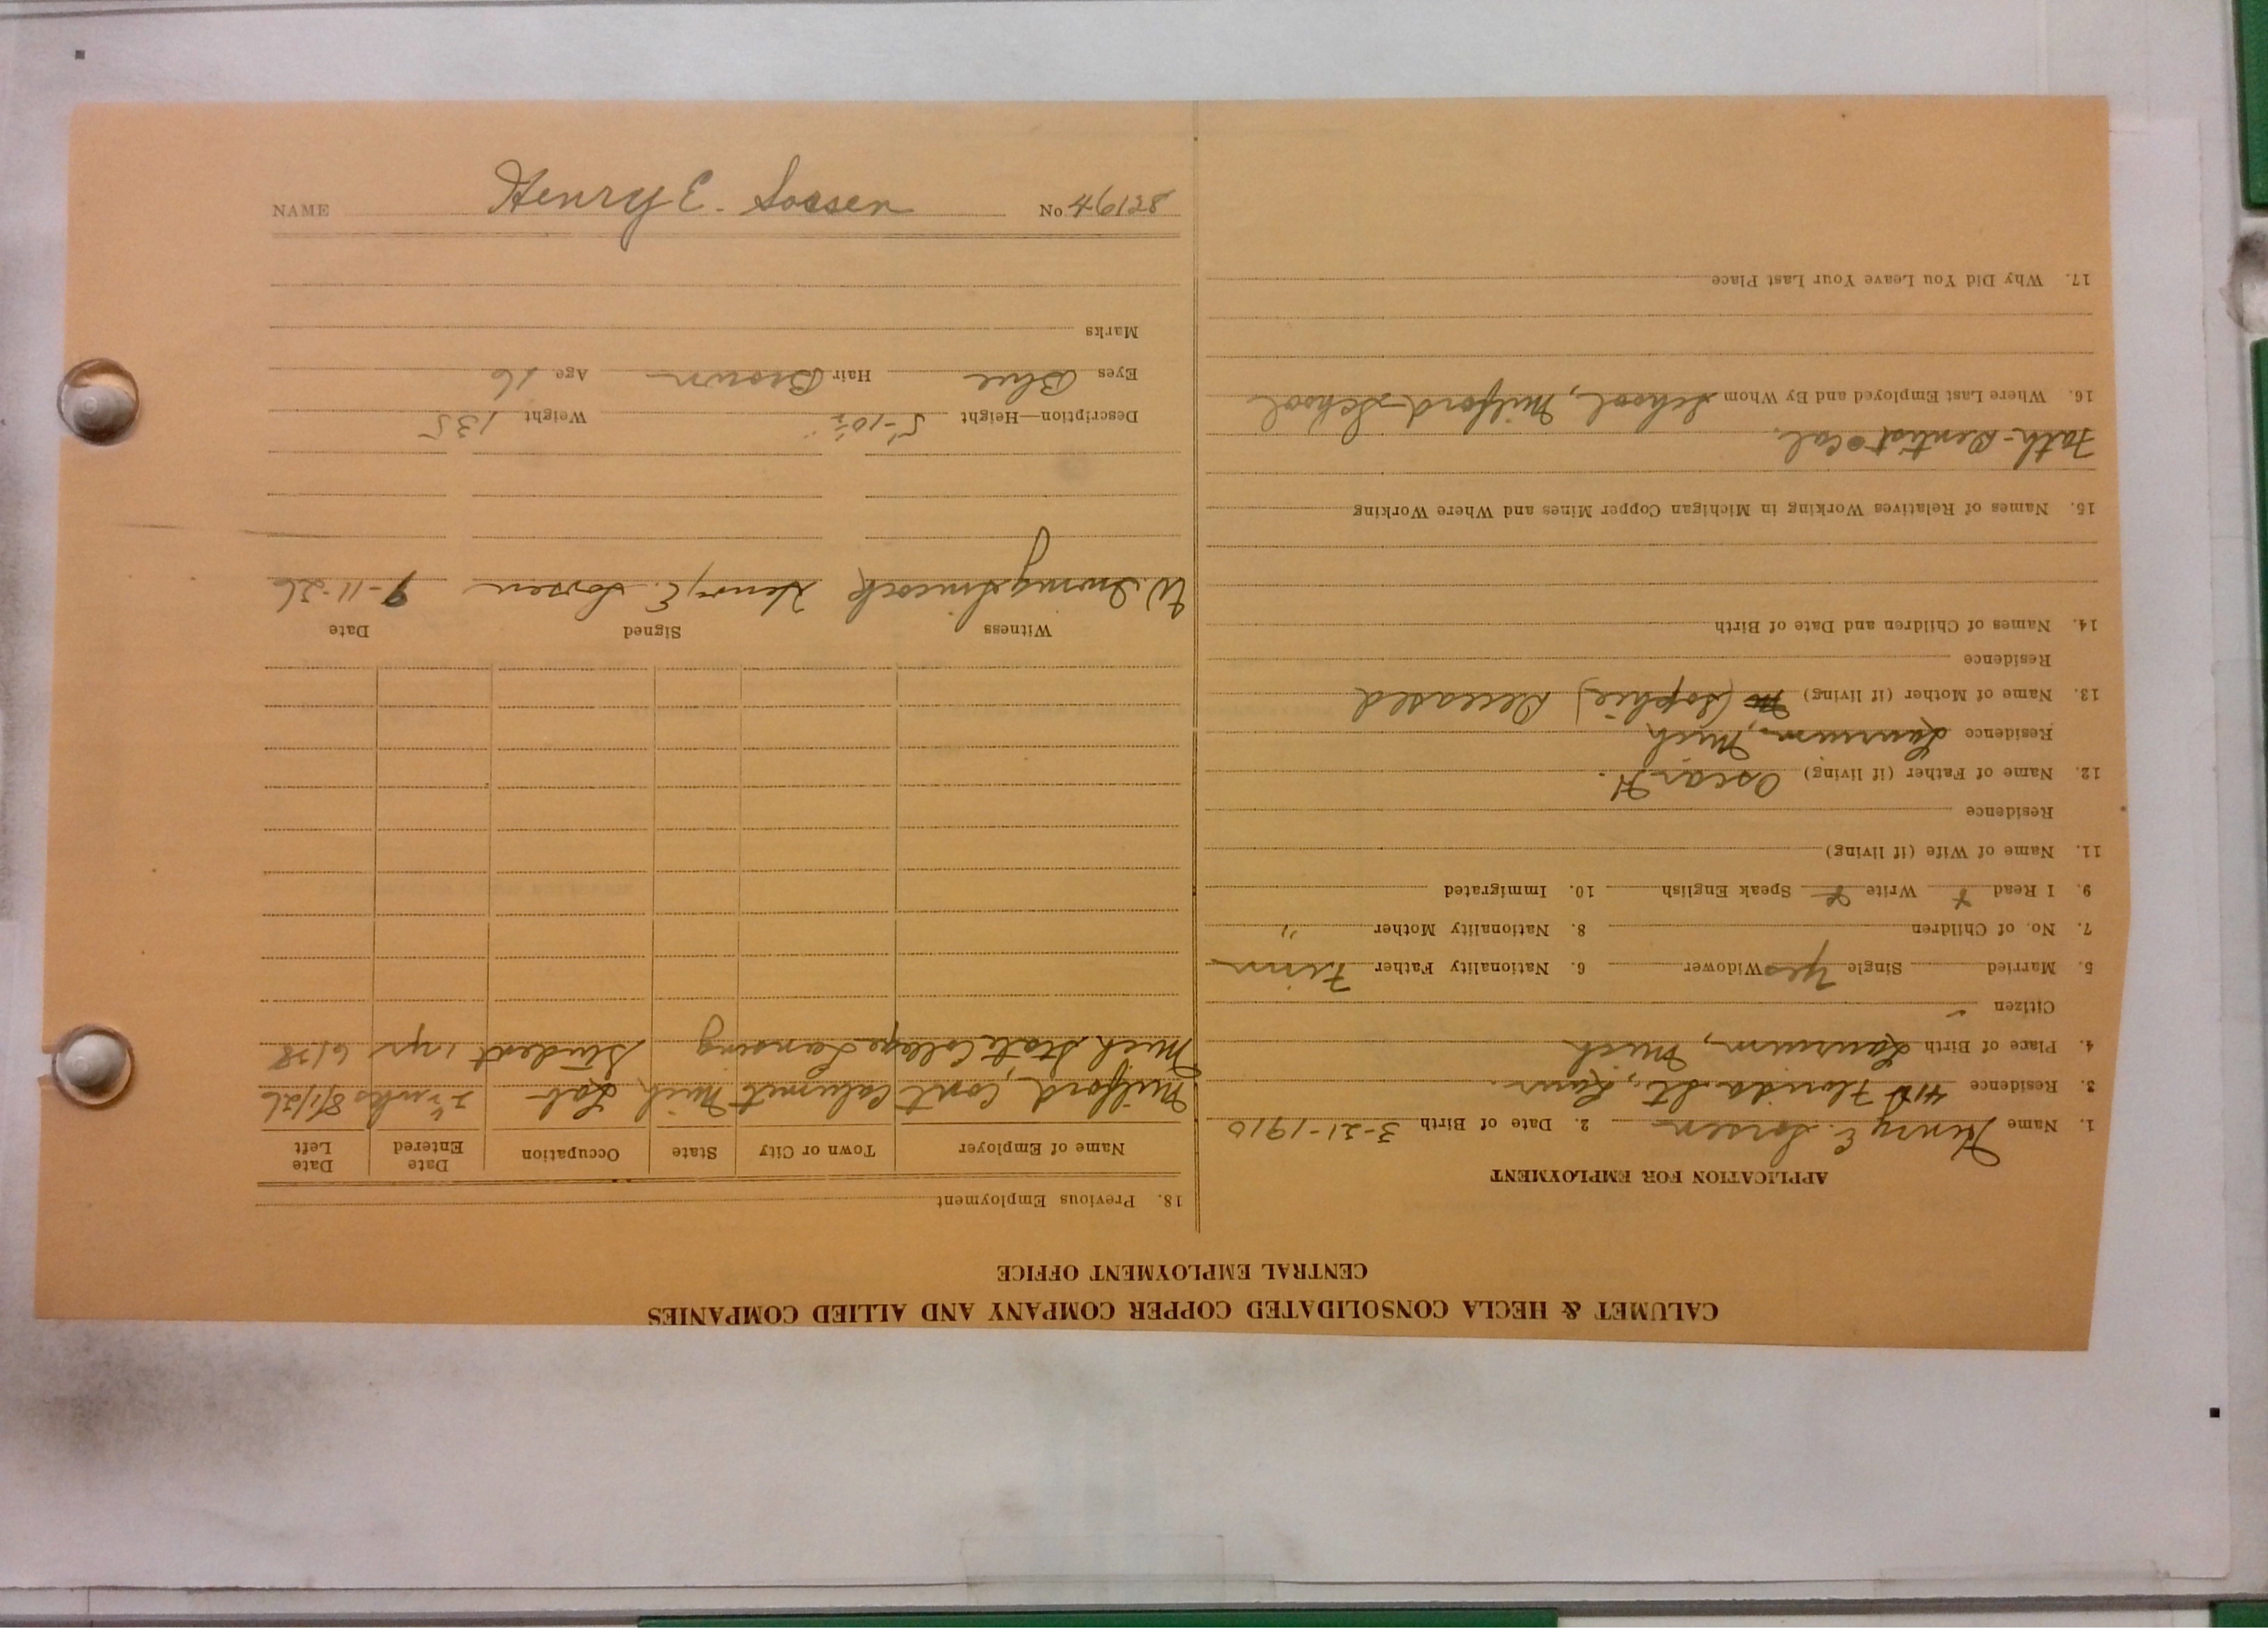 NAME Henry E. Sorsen No 46128
CALUMET & HECLA CONSOLIDATED COPPER COMPANY AND ALLIED COMPANIES
CENTRAL EMPLOYMENT OFFICE
APPLICATION FOR EMPLOYMENT
1. Name Henry E. Sorsen 2. Date of Birth 3-21-1910
3. Residence Florida St., Laur.
4. Place of Birth Laurium, Mich
Citizen ✓
5. Married Single Yes Widower 6. Nationality Father Finn
7. No. of Children 8. Nationality Mother "
9. I Read + Write + Speak English 10. Immigrated
11. Name of Wife (if living)
Residence
12. Name of Father (if living) Oscar H.
Residence Laurium, Mich
13. Name of Mother (if living) (Sophie) Deceased
Residence
14. Names of Children and Date of Birth
15. Names of Relatives Working in Michigan Copper Mines and Where Working
Fath-Dentist Cal.
16. Where Last Employed and By Whom School, Milford School
17. Why Did You Leave Your Last Place
18. Previous Employment
Name of Employer Town or City State Occupation Date Entered Date Left
Milford, Cont Calumet Mich Lab 8/1/26
Mich State College Lansing Student 1 yr 6/28
Witness Signed Date
W. Henry E. Sorsen 9-11-26
Description—Height 5'-10½" Weight 135
Eyes Blue Hair Brown Age 16
Marks